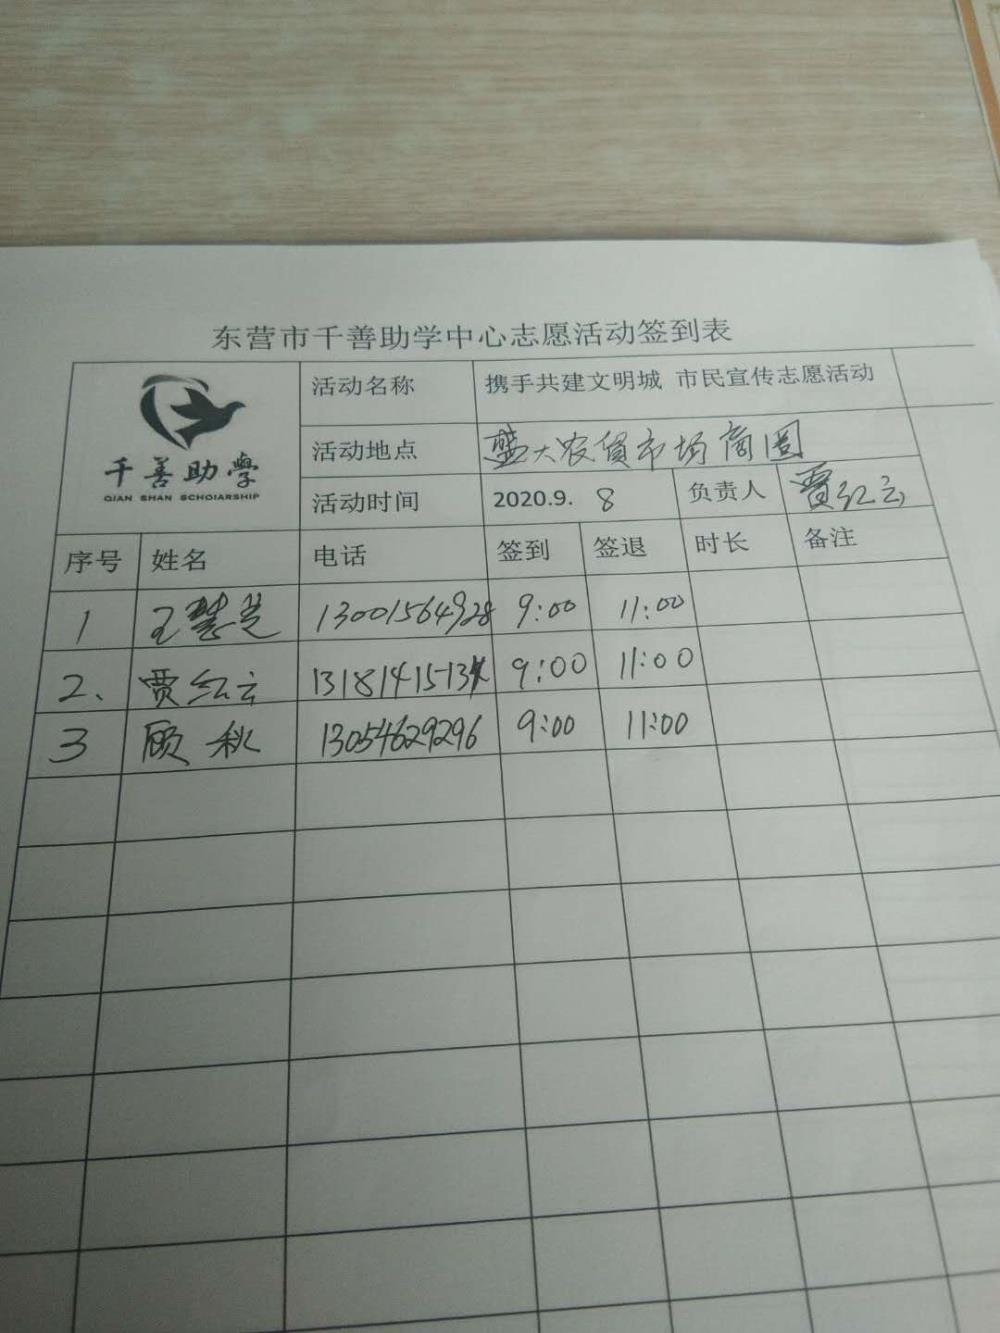 东营市千善助学中心志愿活动签到表
千善助學
QIAN SHAN SCHOIARSHIP
活动名称 携手共建文明城 市民宣传志愿活动
活动地点 盛大农贸市场商圈
活动时间 2020.9. 8 负责人 贾红云
序号 姓名 电话 签到 签退 时长 备注
1 王慧芝 13001564928 9:00 11:00
2、 贾红云 1318141513 9:00 11:00
3 顾秋 13054629296 9:00 11:00